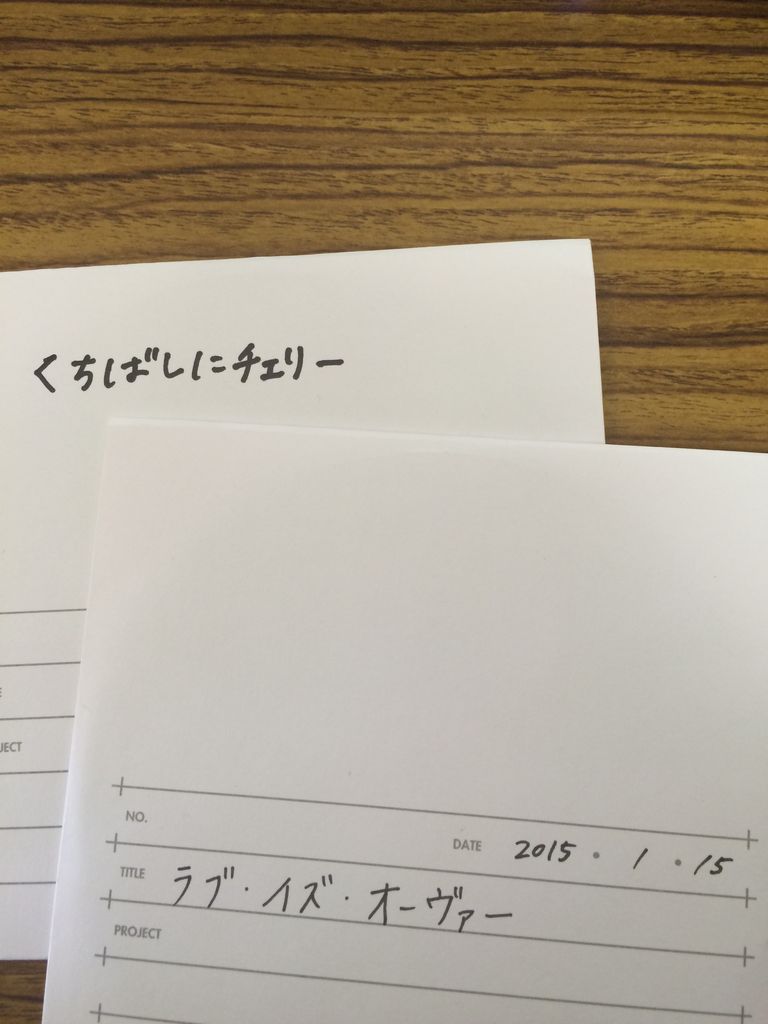 くちばしにチェリー
JECT
NO.
DATE 2015・1・15
TITLE ラブ・イズ・オーヴァー
PROJECT